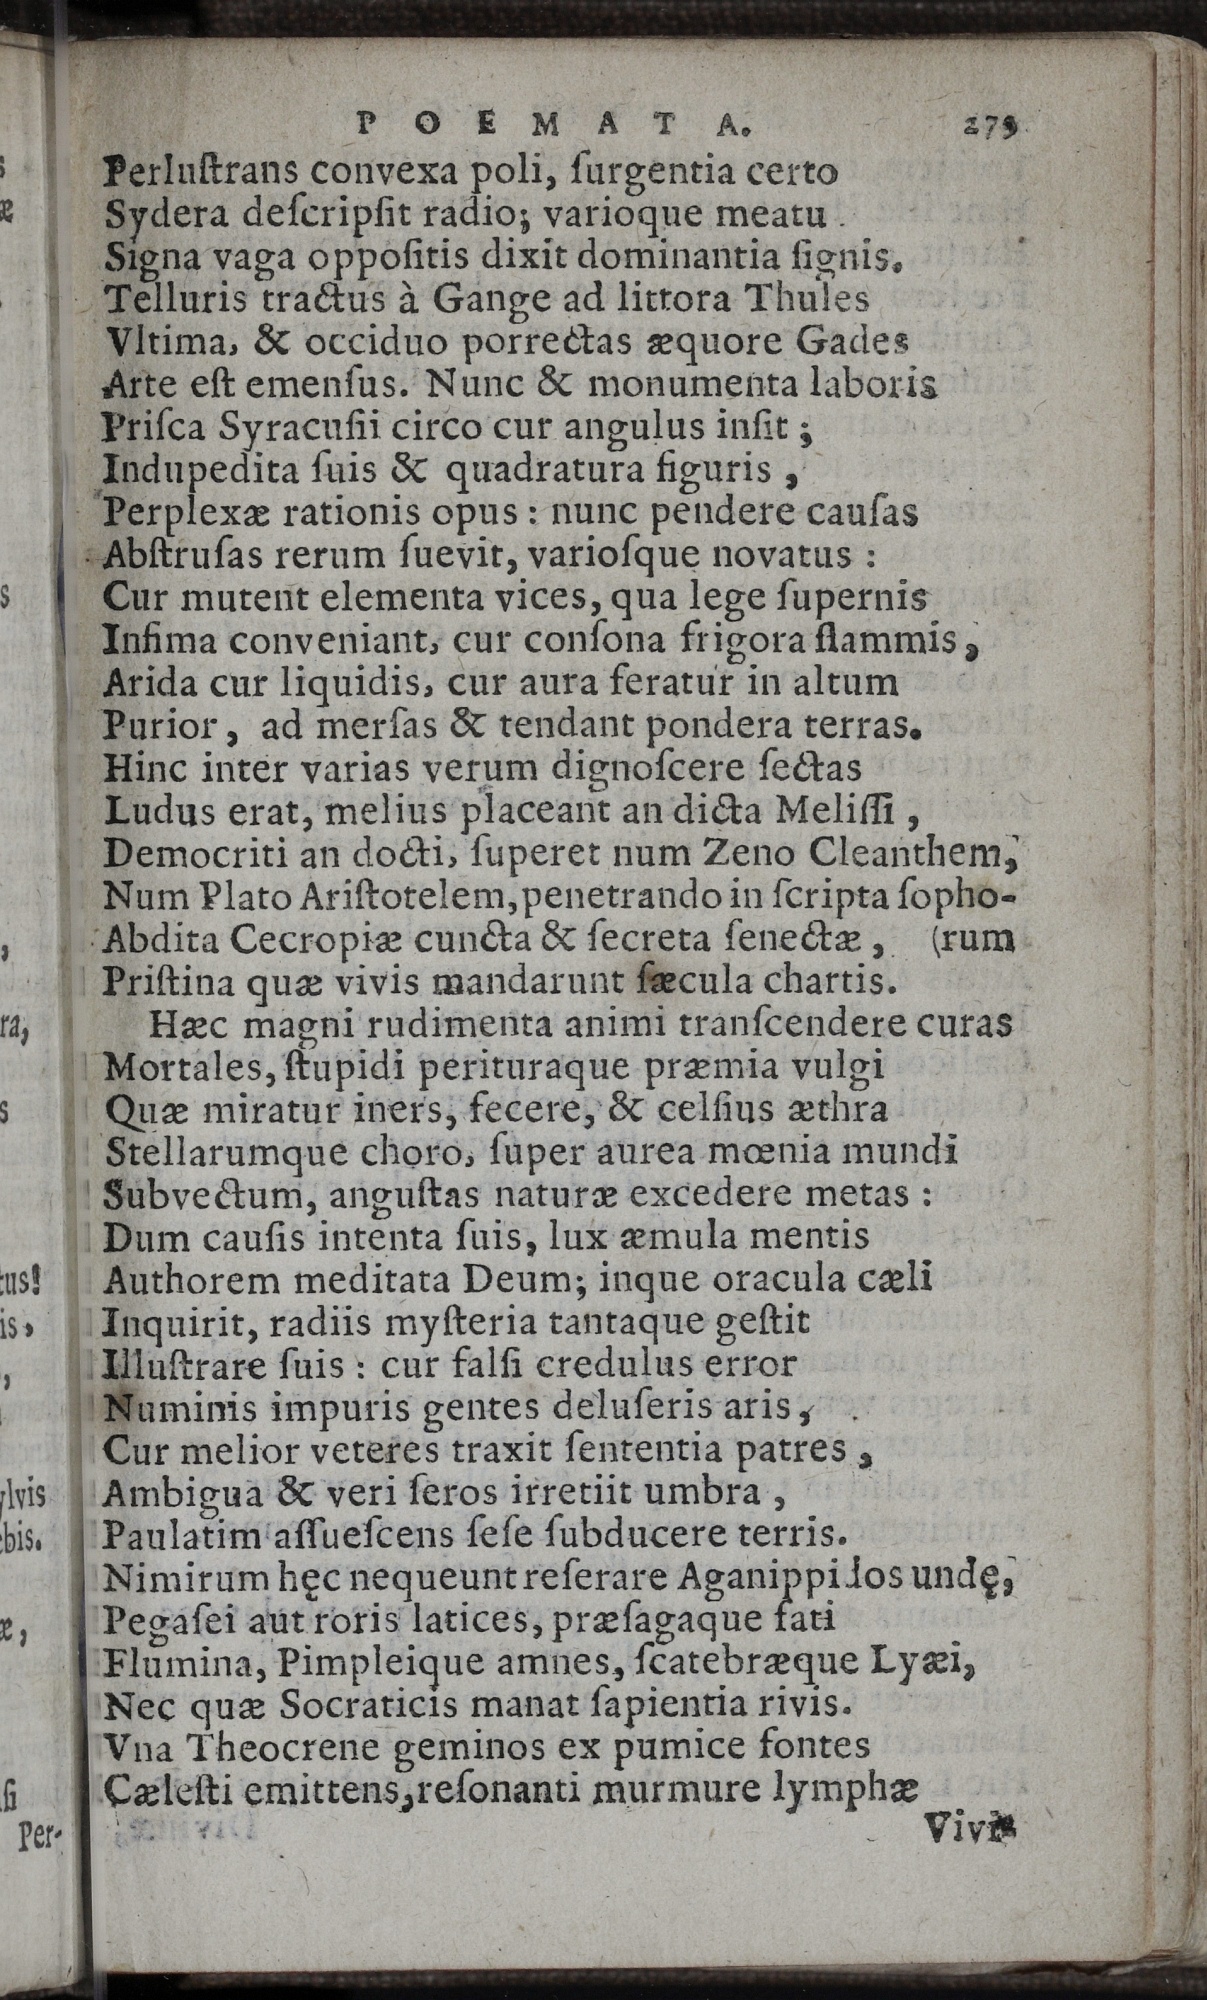 POEMATA. 279
Perlustrans convexa poli, ſurgentia certo
Sydera deſcripſit radio; varioque meatu
Signa vaga oppoſitis dixit dominantia ſignis.
Telluris tractus à Gange ad littora Thules
Vltima, & occiduo porrectas æquore Gades
Arte eſt emenſus. Nunc & monumenta laboris
Priſca Syracuſii circo cur angulus inſit;
Indupedita ſuis & quadratura figuris,
Perplexæ rationis opus: nunc pendere cauſas
Abſtruſas rerum ſuevit, varioſque novatus:
Cur mutent elementa vices, qua lege ſupernis
Infima conveniant, cur conſona frigora flammis,
Arida cur liquidis, cur aura feratur in altum
Purior, ad merſas & tendant pondera terras.
Hinc inter varias verum dignoſcere ſectas
Ludus erat, melius placeant an dicta Meliſſi,
Democriti an docti, ſuperet num Zeno Cleanthem,
Num Plato Ariſtotelem, penetrando in ſcripta ſopho-
Abdita Cecropiæ cuncta & ſecreta ſenectæ, (rum
Priſtina quæ vivis mandarunt ſæcula chartis.
Hæc magni rudimenta animi tranſcendere curas
Mortales, ſtupidi perituraque præmia vulgi
Quæ miratur iners, fecere, & celſius æthra
Stellarumque choro, ſuper aurea mœnia mundi
Subvectum, anguſtas naturæ excedere metas:
Dum cauſis intenta ſuis, lux æmula mentis
Authorem meditata Deum; inque oracula cæli
Inquirit, radiis myſteria tantaque geſtit
Illuſtrare ſuis: cur falſi credulus error
Numinis impuris gentes deluſeris aris,
Cur melior veteres traxit ſententia patres,
Ambigua & veri ſeros irretiit umbra,
Paulatim aſſueſcens ſeſe ſubducere terris.
Nimirum hęc nequeunt reſerare Aganippidos undę,
Pegaſei aut roris latices, præſagaque fati
Flumina, Pimpleique amnes, ſcatebræque Lyæi,
Nec quæ Socraticis manat ſapientia rivis.
Vna Theocrene geminos ex pumice fontes
Cæleſti emittens, reſonanti murmure lymphæ